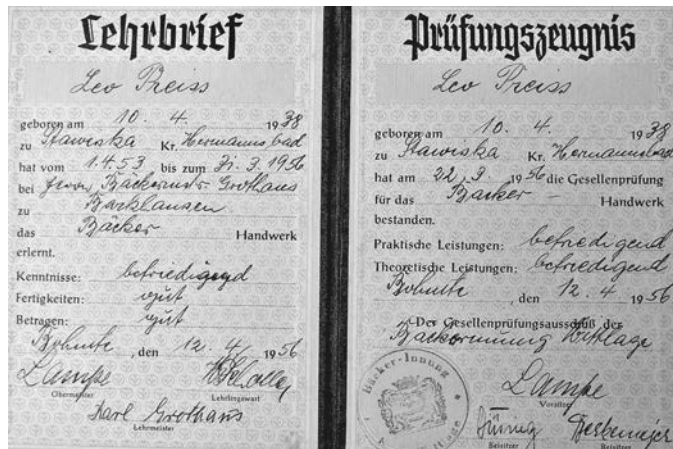 Lehrbrief
Leo Preiss
geboren am 10. 4. 1938
zu Stawiska Kr. Hermannsbad
hat vom 1.4.53 bis zum 31.3.1956
bei Herrn Bäckermstr. Grothaus
zu Barkhausen
das Bäcker Handwerk
erlernt.
Kenntnisse: befriedigend
Fertigkeiten: gut
Betragen: gut
Bohmte, den 12.4. 1956
Lampe
Obermeister Lehrlingswart
Karl Grothaus
Lehrmeister
Prüfungszeugnis
Leo Preiss
geboren am 10. 4. 1938
zu Stawiska Kr. Hermannsbad
hat am 22.3. 1956 die Gesellenprüfung
für das Bäcker - Handwerk
bestanden.
Praktische Leistungen: befriedigend
Theoretische Leistungen: befriedigend
Bohmte, den 12.4 1956
Der Gesellenprüfungsausschuß der
Bäckerinnung Wittlage
Bäcker-Innung
Lampe
Vorsitzer
Beisitzer Beisitzer